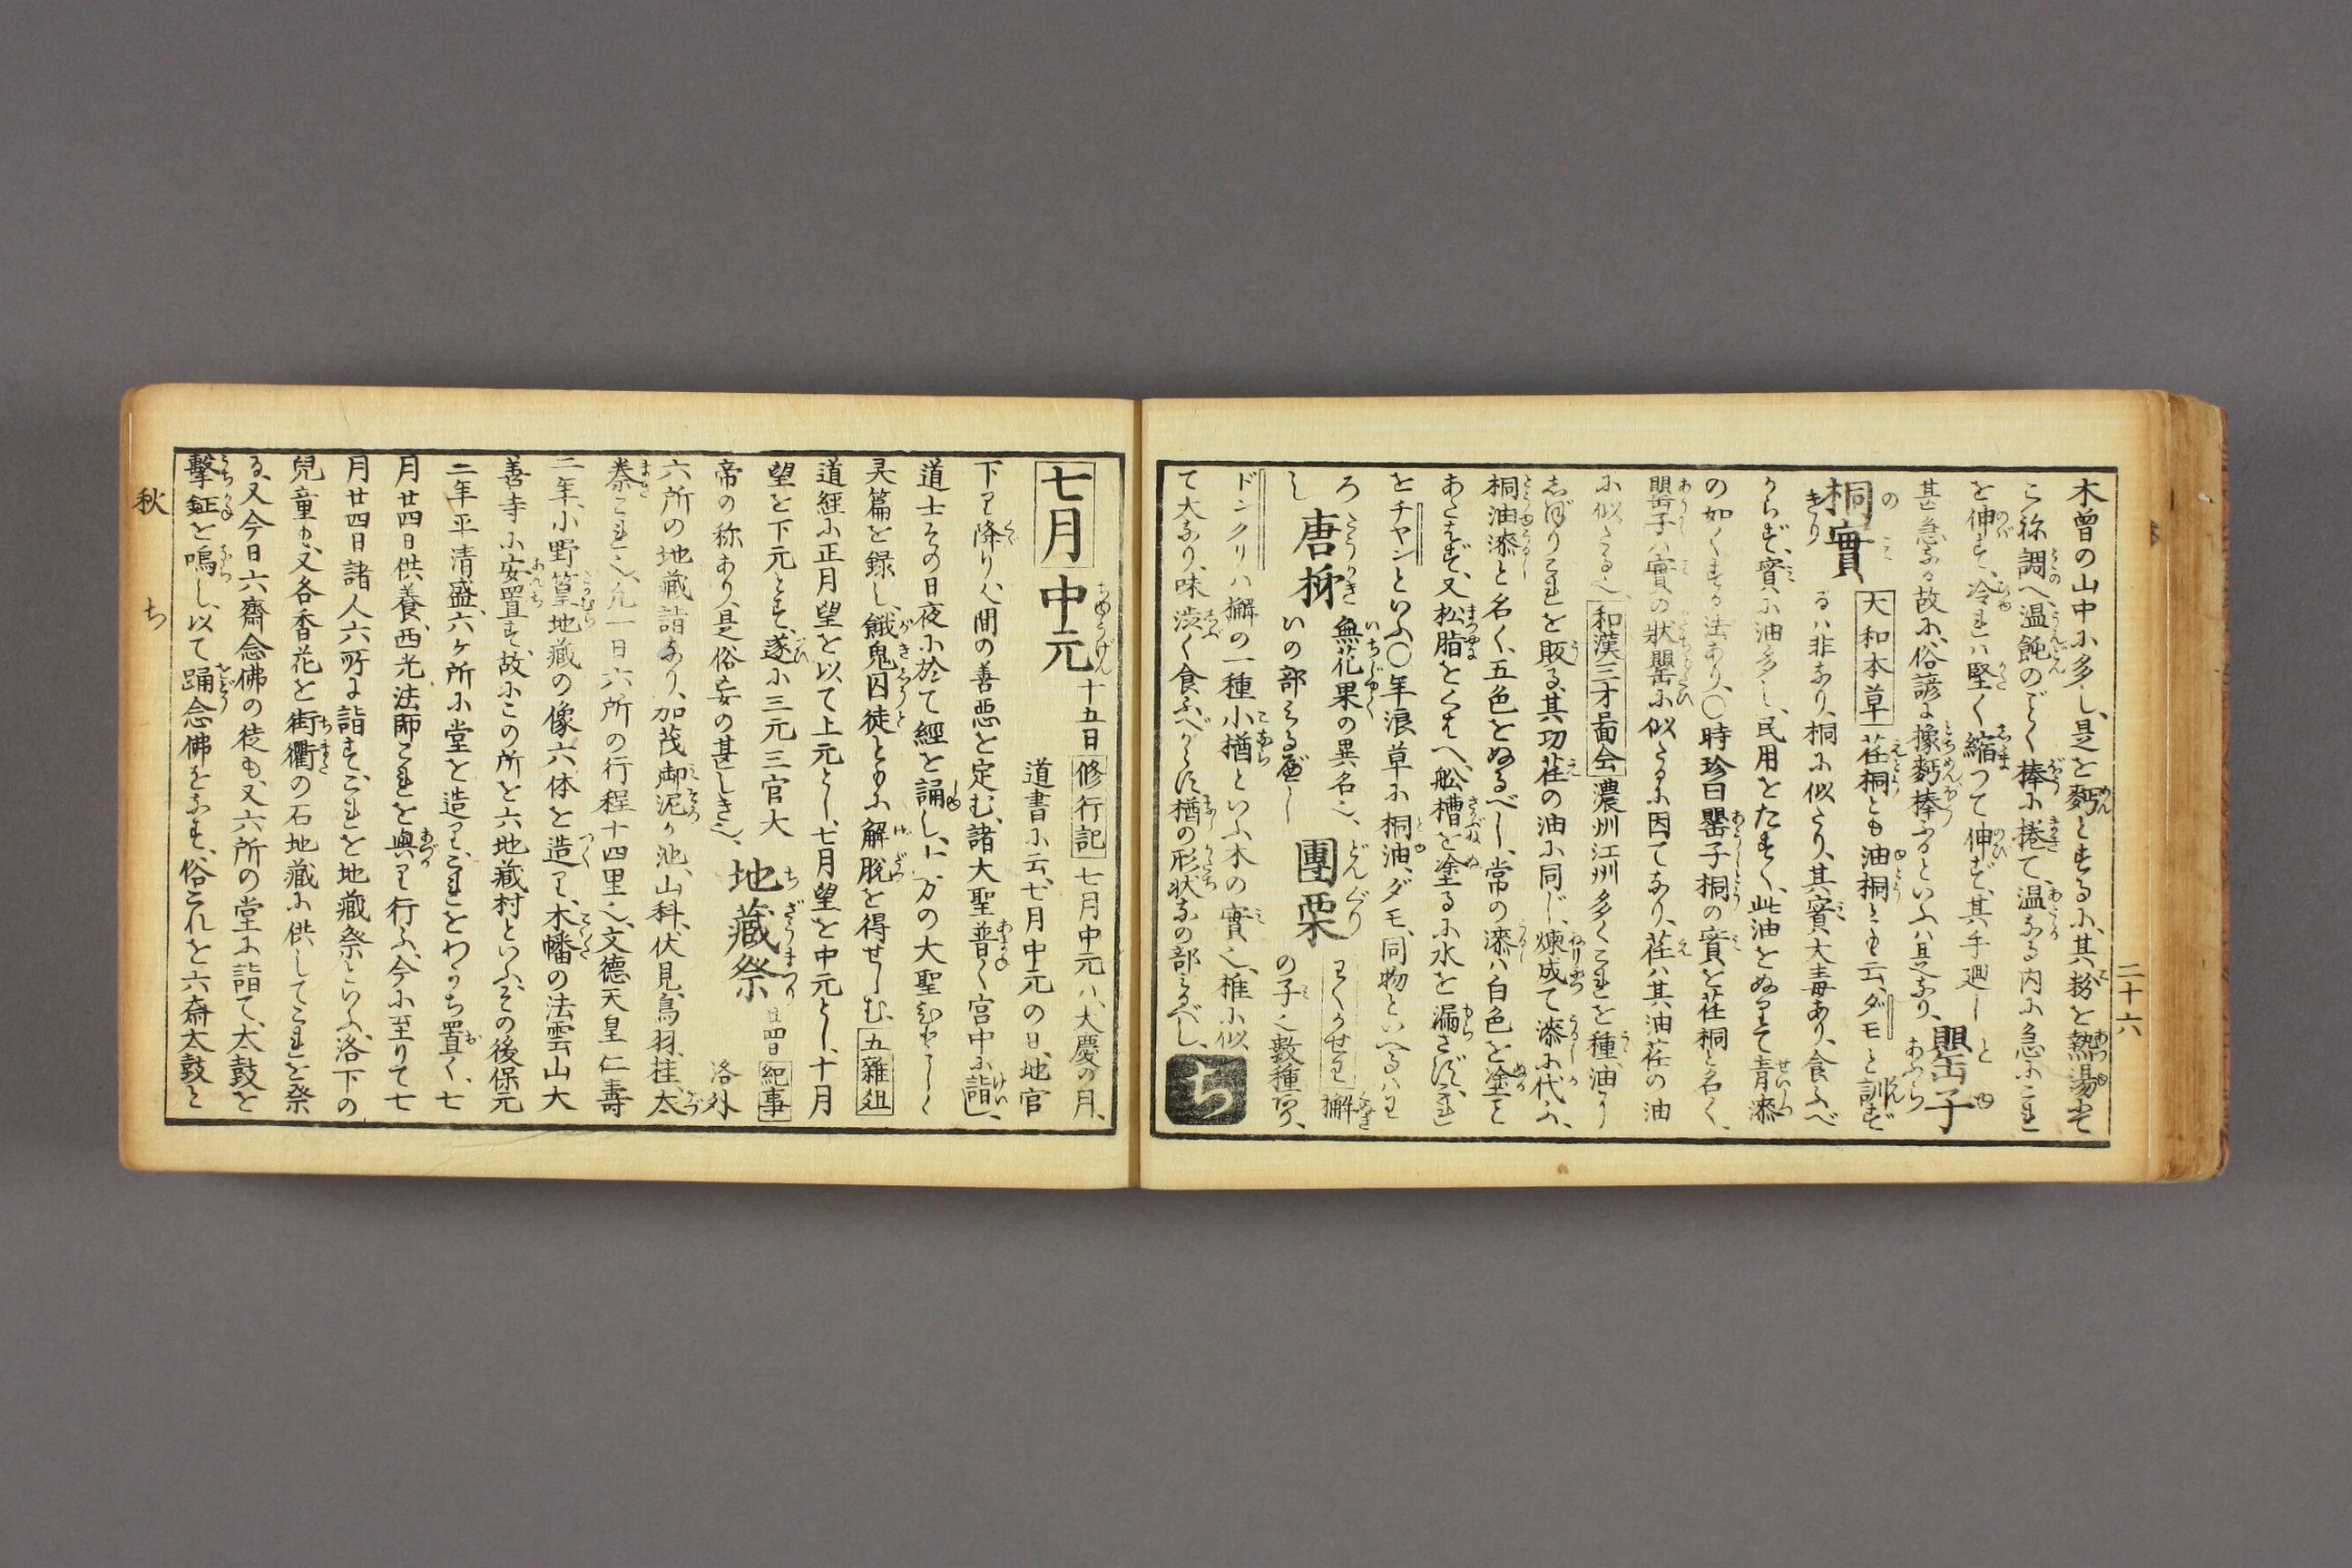 二十六
木曽の山中に多し、是を麪とするに、其粉を熱湯にて
こね調へ、温飩のごとく棒に捲て、温なる内に急にこれ
を伸す、冷れハ堅く縮つて伸ず、其手廻し
甚急なる故に、俗諺に橡麪棒ふるといふハ是なり、
罌子
桐實
大和本草 荏桐とも油桐とも云、ダモと訓ず
るハ非なり、桐に似たり、其實大毒あり、食ふべ
からず、實に油多し、民用をたすく、此油をぬりて青漆
の如くする法あり、○時珍曰罌子桐の實を荏桐と名く、
罌子ハ實の状罌に似たるに因てなり、荏ハ其油荏の油
に似たる也、和漢三才圖会 濃州江州多くこれを種、油を
しぼりこれを販る、其功荏の油に同じ、煉成て漆に代ふ、
桐油漆と名く、五色をぬるべし、常の漆ハ白色を塗こと
あたはず、又松脂をくはへ、舩槽を塗るに水を漏さず、これ
をチヤンといふ○年浪草に桐油、ダモ、同物といへるハわ
ろし
唐柹 無花果の異名也、
いの部に見るべし
團栗
の子也數種あり、
ドングリハ檞の一種小楢といふ木の實也、椎に似
て大なり、味渋く食ふべからず、楢の形状なの部に見るべし、
ち
七月 中元 十五日 修行記 七月中元ハ、大慶の月、
道書に云、七月中元の日、地官
下り降り人間の善悪を定む、諸大聖普く宮中に詣し、
道士その日夜に於て經を誦し、十方の大聖
灵篇を録し、餓鬼囚徒ともに解脱を得せしむ、五雜俎
道經に正月望を以て上元とし、七月望を中元とし、十月
望を下元とす、遂に三元三官大
帝の称あり、是俗妄の甚しき也、
地藏祭 廿四日 紀事 洛外
六所の地藏詣あり、加茂御泥池、山科、伏見、鳥羽、桂、太
秦これ也、凡一日六所の行程十四里也、文德天皇仁壽
二年、小野篁地藏の像六体を造り、木幡の法雲山大
善寺に安置す、故にこの所を六地藏村といふ、その後保元
二年平清盛、六ケ所に堂を造り、これをわかち置く、七
月廿四日供養、西光法師これを與り行ふ、今に至りて七
月廿四日諸人六所に詣す、これを地藏祭といふ、洛下の
兒童も又各香花を街衢の石地藏に供してこれを祭
る、又今日六齋念佛の徒も、又六所の堂に詣て、太鼓を
擊鉦を鳴し、以て踊念佛をなす、俗これを六斎太鼓と
秋
ち